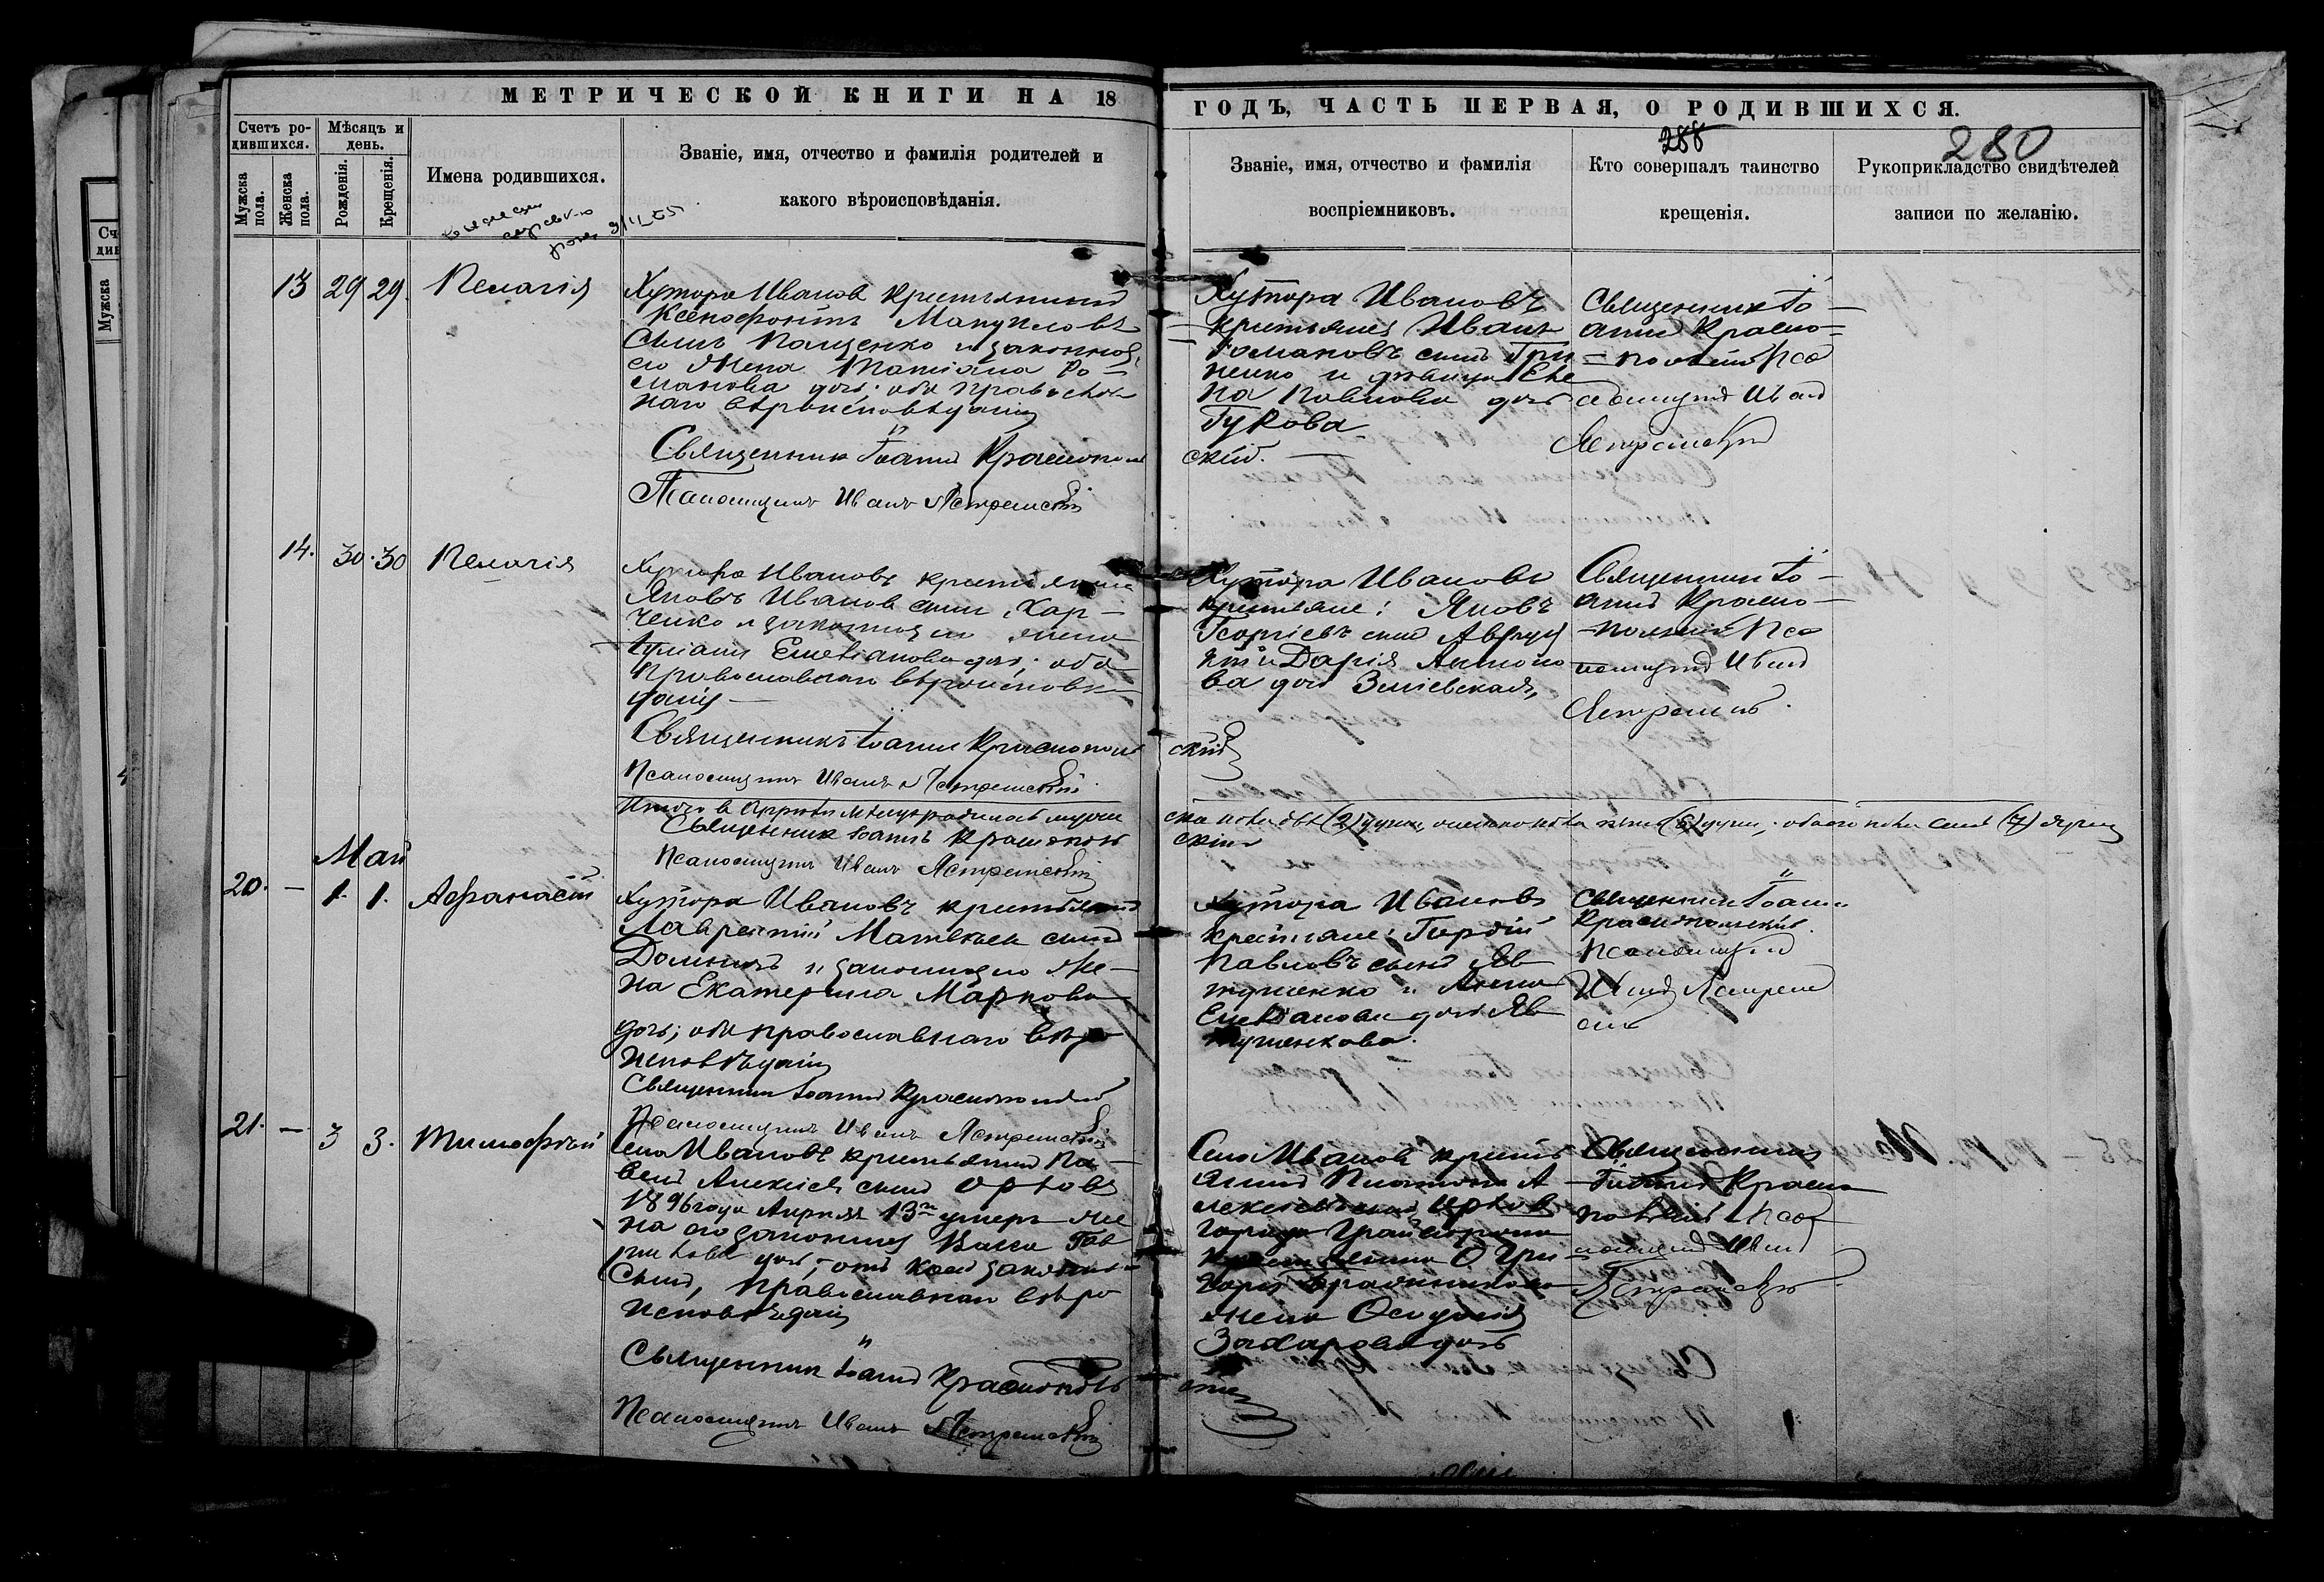 МЕТРИЧЕСКОЙ КНИГИ НА 18
ГОДЪ, ЧАСТЬ ПЕРВАЯ, О РОДИВШИХСЯ.
288
280
Счетъ родившихся.
Мужска пола.
Женска пола.
Мѣсяцъ и день.
Рожденія.
Крещенія.
Имена родившихся.
Званіе, имя, отчество и фамилія родителей и
какого вѣроисповѣданія.
Званіе, имя, отчество и фамилія
воспріемниковъ.
Кто совершалъ таинство
крещенія.
Рукоприкладство свидѣтелей
записи по желанію.
13 29 29. Пелагія
Хутора Иванов крестьянинъ
Ксенофонтъ Мануиловъ
сынъ Пащенко и законная
его жена Татіана Ро-
манова дочь; оба православ
наго вѣроисповѣданія
Священникъ Іоаннъ Краснополь
Псаломщикъ Иванъ Ястремскій
Хутора Ивановъ
крестьяне Иванъ
Романовъ сынъ Гри
ненко и
на Павлова дочь
Гукова
скій.
Священникъ Іо-
аннъ Красно-
польскій Пса
ломщикъ Иванъ
Ястремскій
14. 30. 30 Пелагія
Хутора Ивановъ крестьянинъ
Яковъ Иванов сынъ Хар-
ченко и законная его жена
Іуліанія Емеліанова дочь; оба
православнаго вѣроисповѣ
данія
Священникъ Іоаннъ Краснополь
Псаломщикъ Иванъ Ястремскій
Хутора Ивановъ
крестьяне: Яковъ
Георгіевъ сынъ
и Дарія Антоно
ва дочь Зміевская,
скій
Священникъ Іо-
аннъ Красно-
польскій Пса
ломщикъ Иванъ
Ястремскій.
Итого в Апрѣлѣ мѣсяцѣ родилось муже
ска пола двѣ (2) души, женска пола пять (5) душъ, обоего пола семь (7) душъ
Священникъ Іоаннъ Краснополь
скій
Псаломщикъ Иванъ Ястремскій
Май
20. — 1. 1. Афанасій
Хутора Ивановъ крестьянинъ
Лаврентій Матвѣевъ сынъ
и законная его же-
на Екатерина Маркова
дочь; оба православнаго вѣро
исповѣданія
Священникъ Іоаннъ Краснопольскій
Псаломщикъ Иванъ Ястремскій
Хутора Ивановъ
крестьяне: Гордій
Павловъ сынъ Яв
тушенко и Анна
Емеліанова дочь Яв
тушенкова.
Священникъ Іоаннъ
Краснопольскій.
Псаломщикъ
Иванъ Ястрем
скій
21. — 3 3. Тимофей
Села Ивановъ крестьянинъ Па-
велъ Алексіевъ сынъ Орловъ
1896 года Апрѣля 13го умеръ же
на его законная Васса Гав
рилова дочь; отъ коей законный
сынъ, православнаго вѣро
исповѣданія
Священникъ Іоаннъ Краснополь
Псаломщикъ Иванъ Ястремскій
Села Ивановъ кресть
янинъ Платонъ А
лексіевъ сынъ Орлов
города Грайворона
Гри
горія
жена
Захарова дочь
скій
Священникъ
Іоаннъ Красно
польскій Пса
ломщикъ Иванъ
Ястремскій